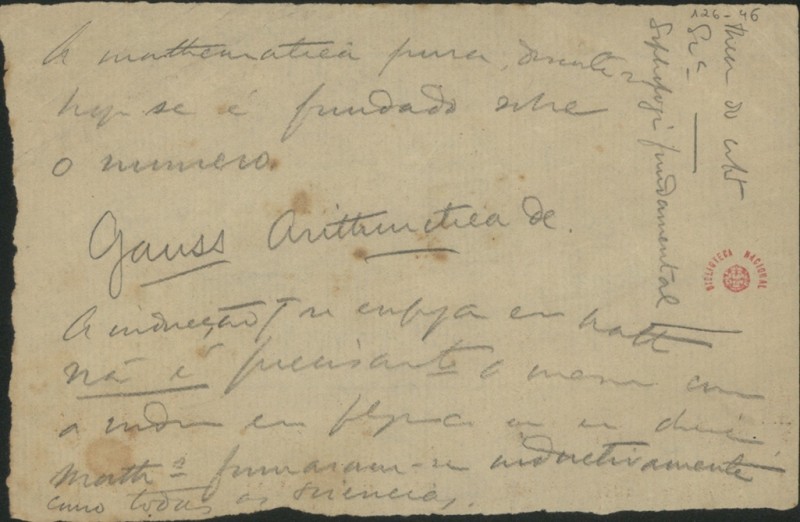 A mathematica pura,
hoje se é fundado sobre
o numero.
Gauss Arithmetica de.
A inducção q se emprega em math
não é precisamte o mesmo com
a em physica ou em
Mathca formaram-se inductivamente
como todas as sciencias.
126-46
Theor do
Sra
fundamental
BIBLIOTECA NACIONAL